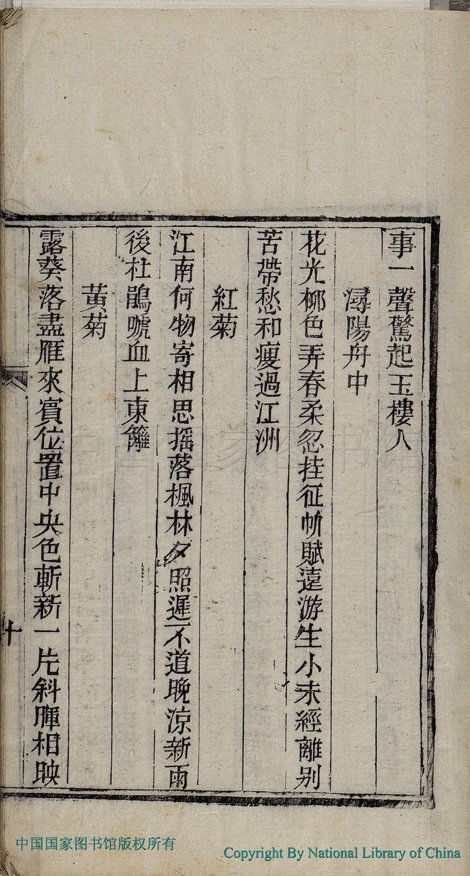 事一聲驚起玉樓人
潯陽舟中
花光柳色弄春柔忽挂征帆賦遠游生小未經離别
苦帶愁和瘦過江洲
紅菊
江南何物寄相思摇落楓林夕照遲不道晚涼新雨
後杜鵑唬血上東籬
黄菊
露葵落盡雁來賓位置中央色斬新一片斜暉相映
十
中国国家图书馆版权所有
Copyright By National Library of China